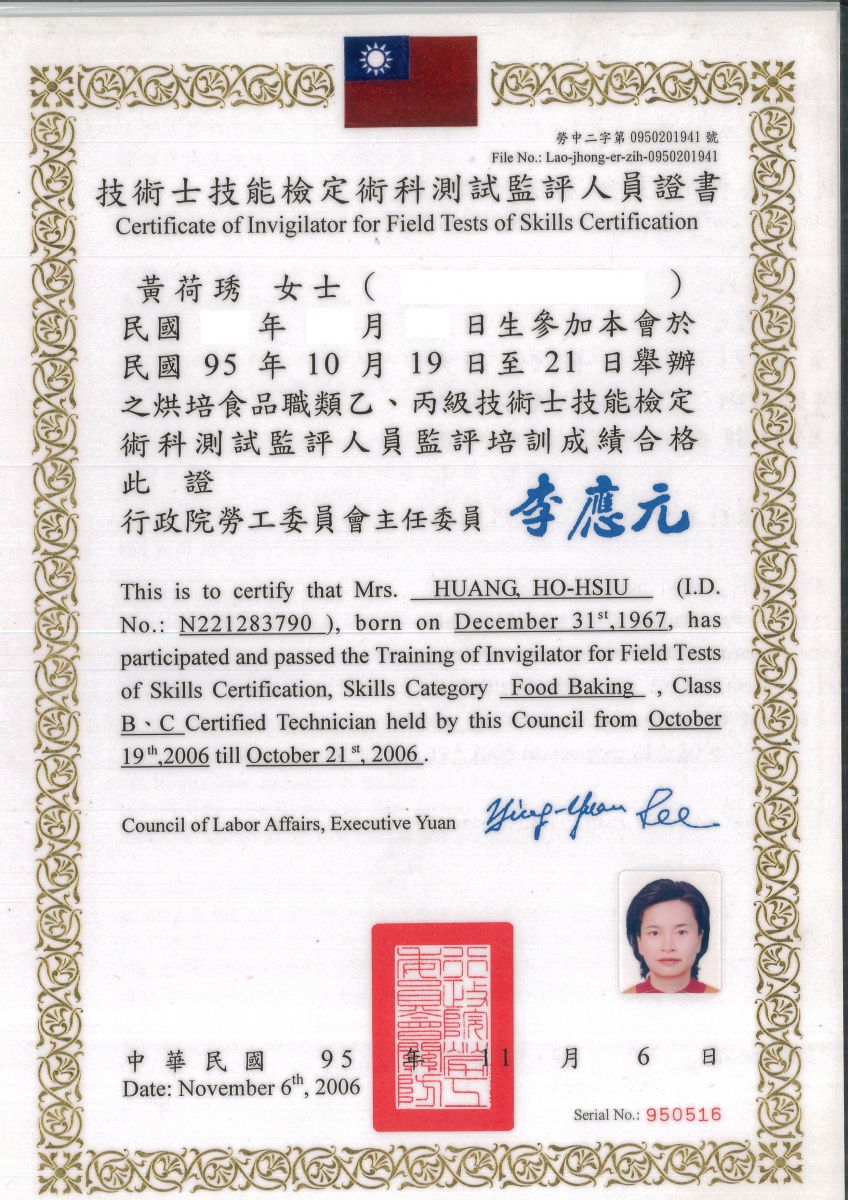 勞中二字第 0950201941 號
File No.: Lao-jhong-er-zih-0950201941
技術士技能檢定術科測試監評人員證書
Certificate of Invigilator for Field Tests of Skills Certification
黃荷琇 女士 ( )
民國 年 月 日生參加本會於
民國 95 年 10 月 19 日至 21 日舉辦
之烘培食品職類乙、丙級技術士技能檢定
術科測試監評人員監評培訓成績合格
此 證
行政院勞工委員會主任委員 李應元
This is to certify that Mrs. HUANG, HO-HSIU (I.D.
No.: N221283790 ), born on December 31st,1967, has
participated and passed the Training of Invigilator for Field Tests
of Skills Certification, Skills Category Food Baking , Class
B、C Certified Technician held by this Council from October
19th,2006 till October 21st, 2006 .
Council of Labor Affairs, Executive Yuan Ying-Yuan Lee
行政院勞工委員會關防
中華民國 95 年 11 月 6 日
Date: November 6th, 2006
Serial No.: 950516